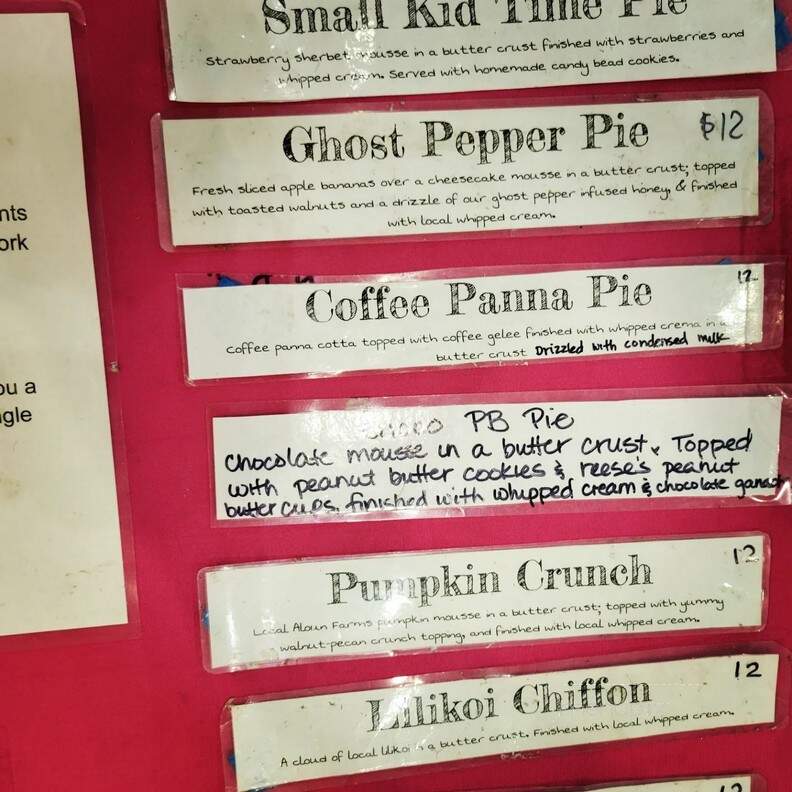 Small Kid Time Pie
Strawberry sherbet mousse in a butter crust finished with strawberries and
whipped cream. Served with homemade candy bead cookies.
Ghost Pepper Pie $12
Fresh sliced apple bananas over a cheesecake mousse in a butter crust; topped
with toasted walnuts and a drizzle of our ghost pepper infused honey, & finished
with local whipped cream.
nts
ork
Coffee Panna Pie 12
Coffee panna cotta topped with coffee gelee finished with whipped crema in a
butter crust Drizzled with condensed milk
ou a
gle
Choco PB Pie
Chocolate mousse in a butter crust. Topped
with peanut butter cookies & reese's peanut
butter cups, finished with whipped cream & chocolate ganach
Pumpkin Crunch 12
Local Aloun Farms pumpkin mousse in a butter crust; topped with yummy
walnut-pecan crunch topping, and finished with local whipped cream.
Lilikoi Chiffon 12
A cloud of local lilikoi in a butter crust. Finished with local whipped cream.
12